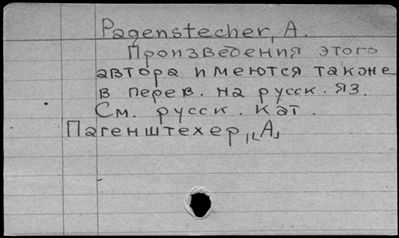 Pagenstecher, A.
Произведения этого
автора имеются также
в перев. на русск. яз.
См. русск. кат.
Пагенштехер, "А"